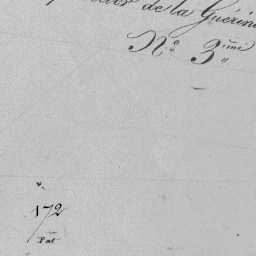 de la Guérin
N.° 3.ème
172
Pat